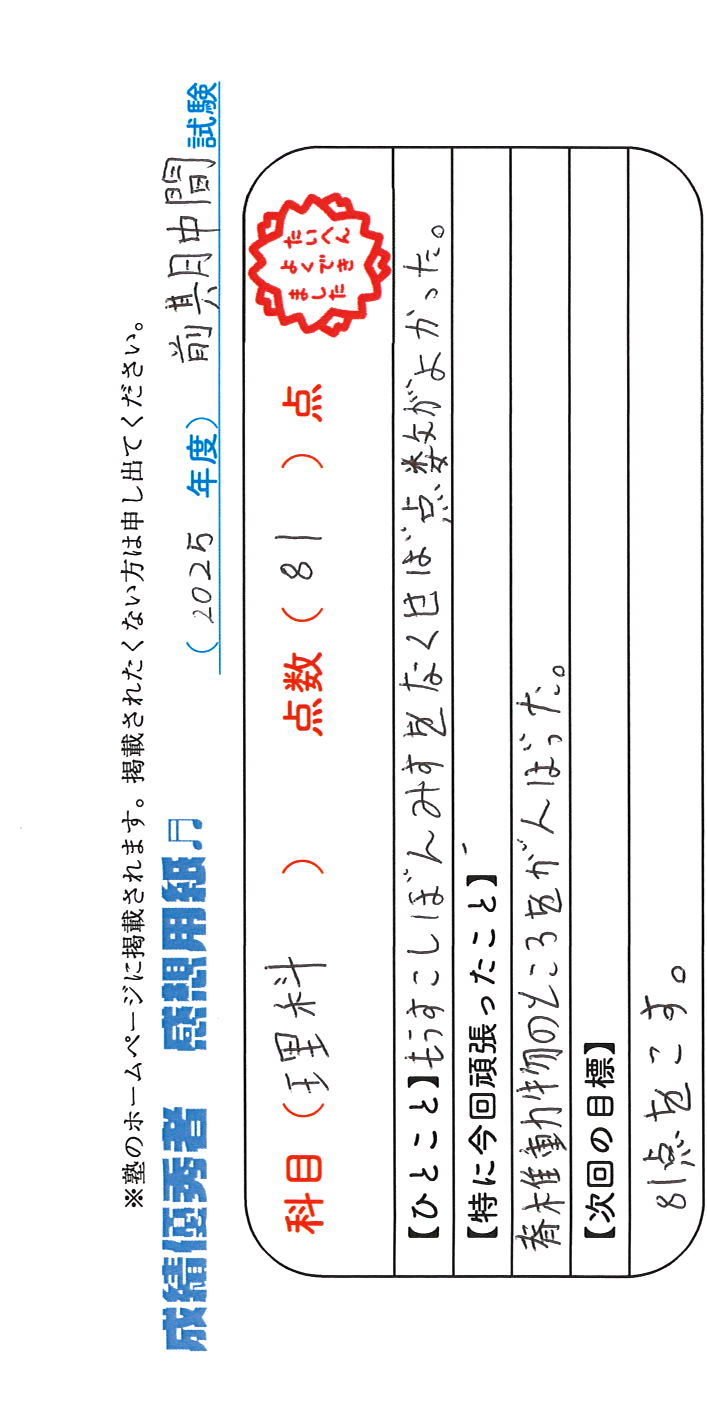 ※塾のホームページに掲載されます。掲載されたくない方は申し出てください。
成績優秀者 感想用紙♬ (2025 年度) 前期中間 試験
科目(理科) 点数(81)点
たいへん
よくでき
ました
【ひとこと】もうすこしぼんみすをなくせば点数がよかった。
【特に今回頑張ったこと】
脊椎動物のところをがんばった。
【次回の目標】
81点をこす。